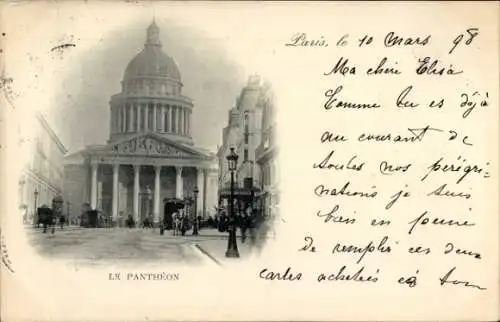 Paris, le 10 Mars 98
Ma chère Elisa
Comme tu es déjà
au courant de
toutes nos pérégri
nations je suis
bien en peine
de remplir ces deux
cartes achetées à ton
LE PANTHÉON